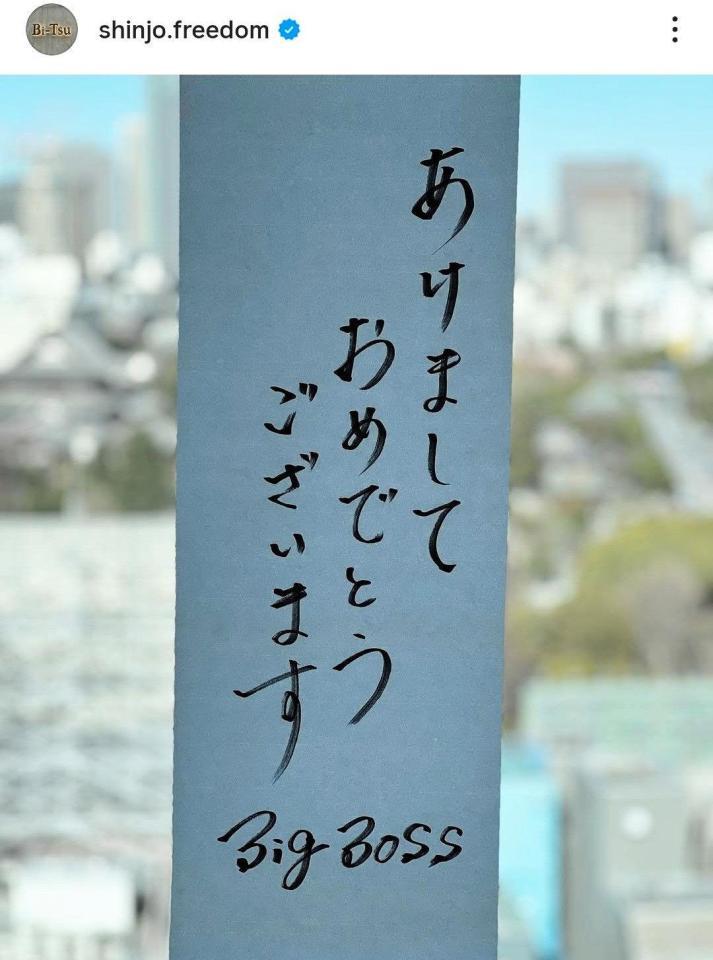 Bi-Tsu
shinjo.freedom
あけまして
おめでとう
ございます
Big Boss